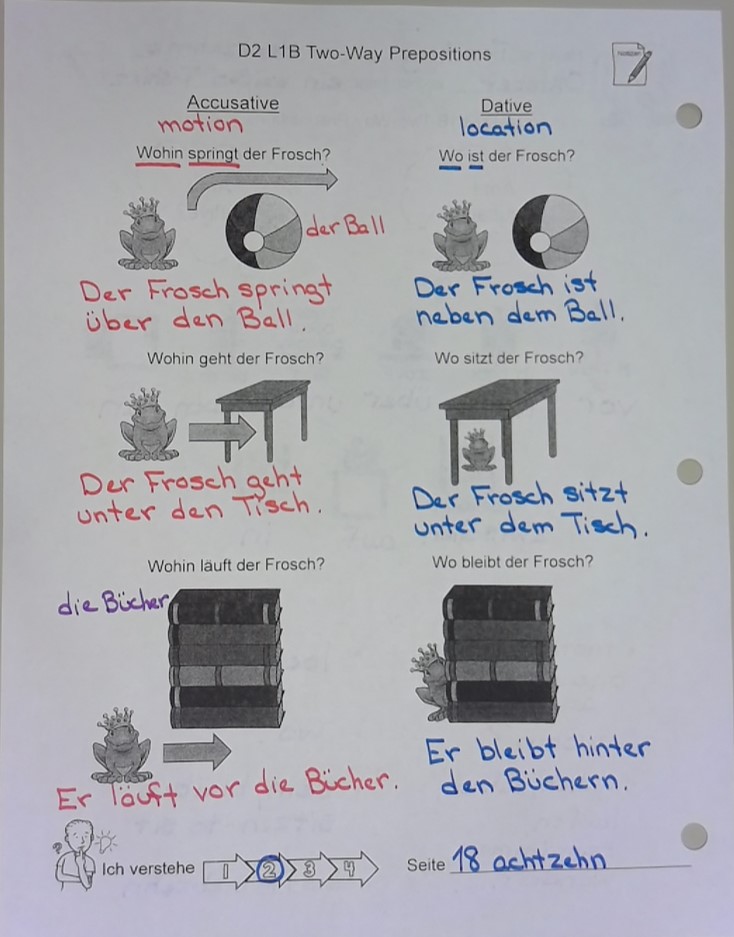 D2 L1B Two-Way Prepositions
Notizen
Accusative
motion
Wohin springt der Frosch?
der Ball
Der Frosch springt
über den Ball.
Dative
location
Wo ist der Frosch?
Der Frosch ist
neben dem Ball.
Wohin geht der Frosch?
Der Frosch geht
unter den Tisch.
Wo sitzt der Frosch?
Der Frosch sitzt
unter dem Tisch.
Wohin läuft der Frosch?
die Bücher
Er läuft vor die Bücher.
Wo bleibt der Frosch?
Er bleibt hinter
den Büchern.
Ich verstehe 1 2 3 4
Seite 18 achtzehn